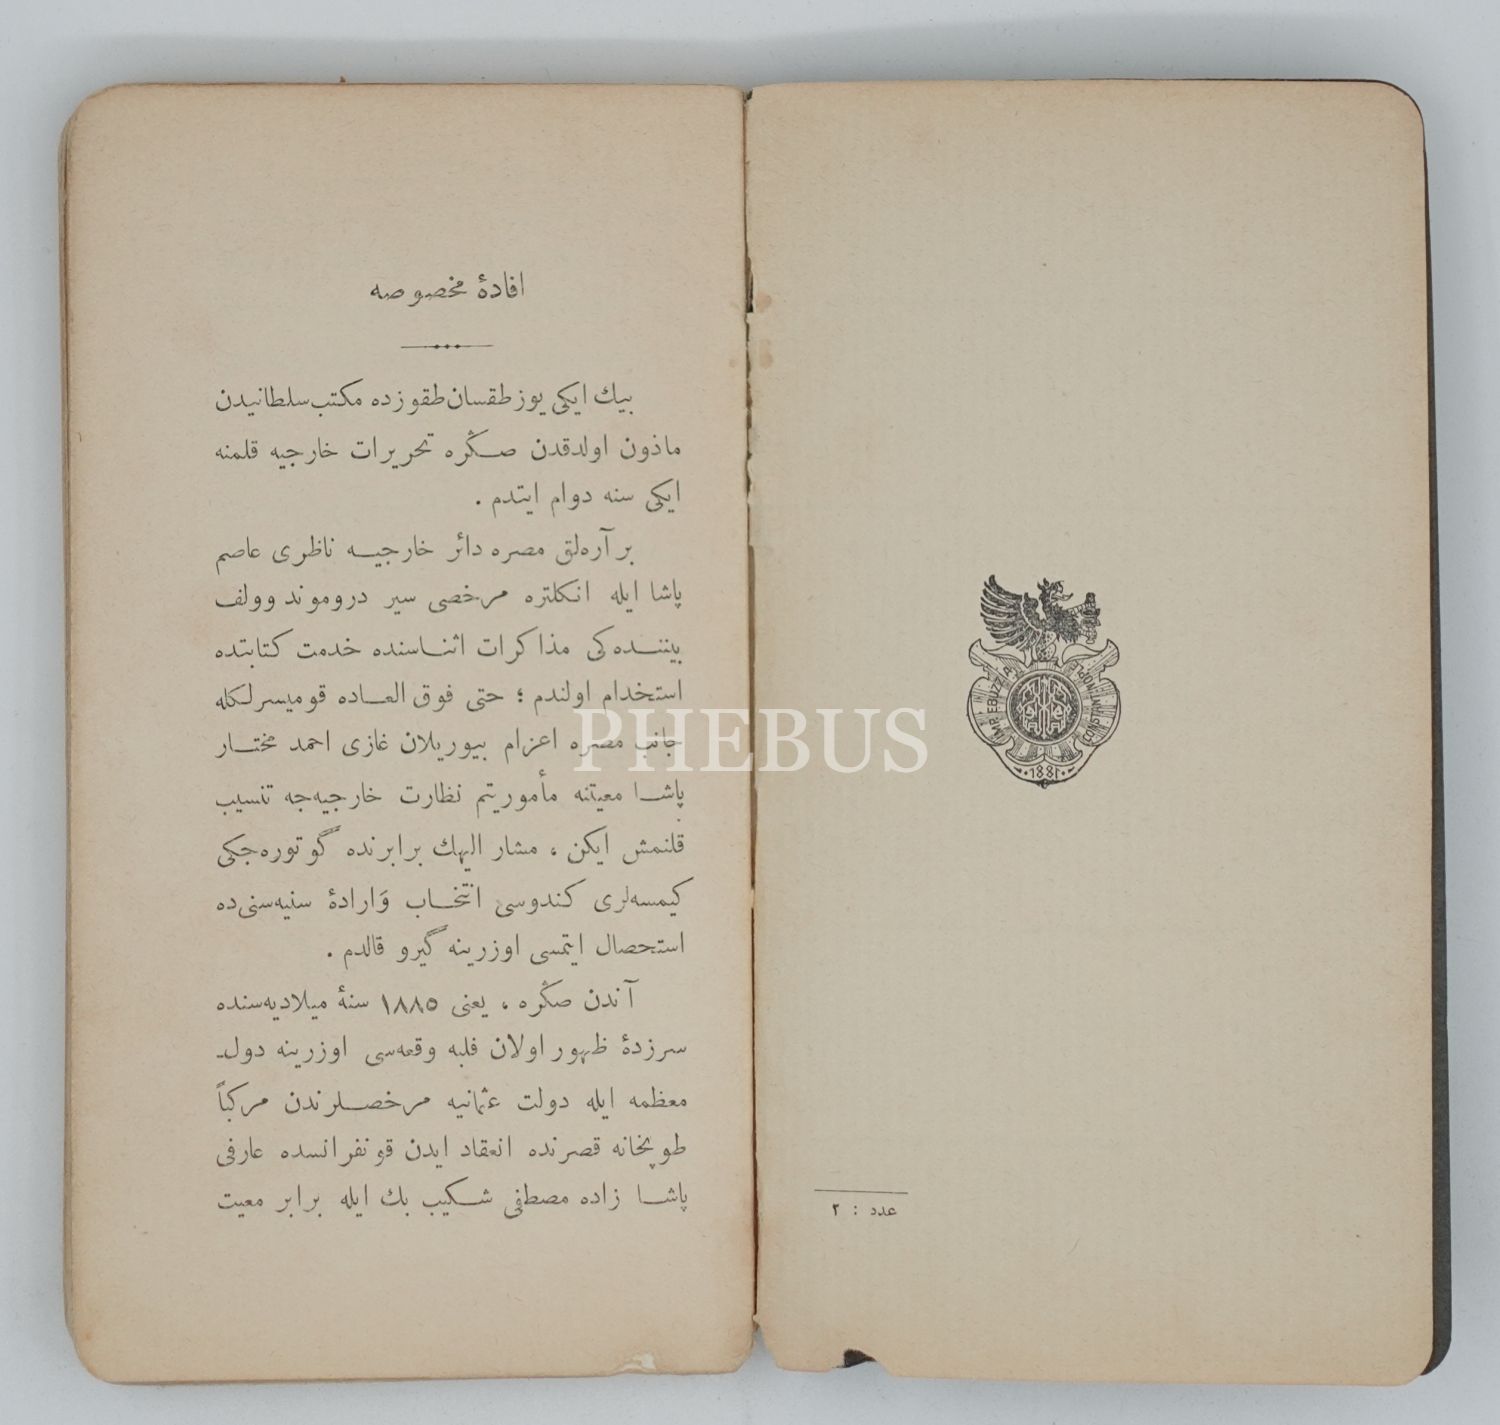 افادۀ مخصوصه
بیك ایکی یوز طقسان طقوزده مکتب سلطانیدن
ماذون اولدقدن صڭره تحریرات خارجیه قلمنه
ایکی سنه دوام ایتدم .
بر آره‌لق مصره دائر خارجیـه ناظری عاصم
پاشا ایله انکلتره مرخصی سیر دروموند وولف
بیننـده‌کی مذاکرات اثنـاسنده خدمت کتابتده
استخدام اولندم ؛ حتی فوق العـاده قومیسرلکله
جانب مصره اعزام بیوریلان غازی احمد مختـار
پاشـا معیتنه مأموریتم نظارت خارجیه‌جه تنسیب
قلنمش ایکن ، مشار الیهك برابرنده گوتوره‌جکی
کیمسه‌لری کندوسی انتخـاب وَارادۀ سنیه‌سنی‌ده
استحصال ایتمسی اوزرینه گیرو قالدم .
آندن صڭره ، یعنی ١٨٨٥ سنۀ میلادیه‌سنده
سرزدۀ ظهور اولان فلبه وقعه‌سی اوزرینه دول‌ـ
معظمه ایله دولت عثمانیه مرخصـلرندن مرکباً
طوپخانه قصرنده انعقاد ایدن قونفرانسده عارفی
پاشـا زاده مصطفی شـکیب بك ایله برابر معیت
IMP. EBUZZIA
CONSTANTINOPLE
1881
عدد : ٢
PHEBUS